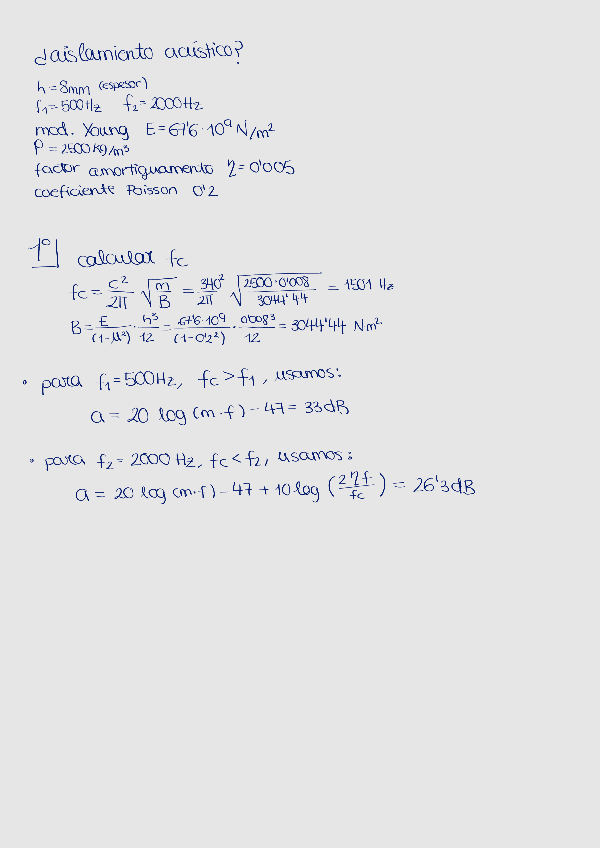 ¿aislamiento acústico?
h = 8mm (espesor)
f₁ = 500Hz f₂ = 2000Hz
mod. Young E = 67'6·10⁹ N/m²
ρ = 2500 kg/m³
factor amortiguamento η = 0'005
coeficiente Poisson 0'2
1º| calcular fc
fc = c²/2π √(m/B) = 340²/2π √(2500·0'008/3044'44) = 1501 Hz
B = E/(1-μ²) · h³/12 = 67'6·10⁹/(1-0'2²) · 0'008³/12 = 3044'44 Nm²
• para f₁ = 500Hz, fc > f₁, usamos:
a = 20 log (m·f) - 47 = 33dB
• para f₂ = 2000 Hz, fc < f₂, usamos:
a = 20 log (m·f) - 47 + 10 log (2ηf/fc) = 26'3dB